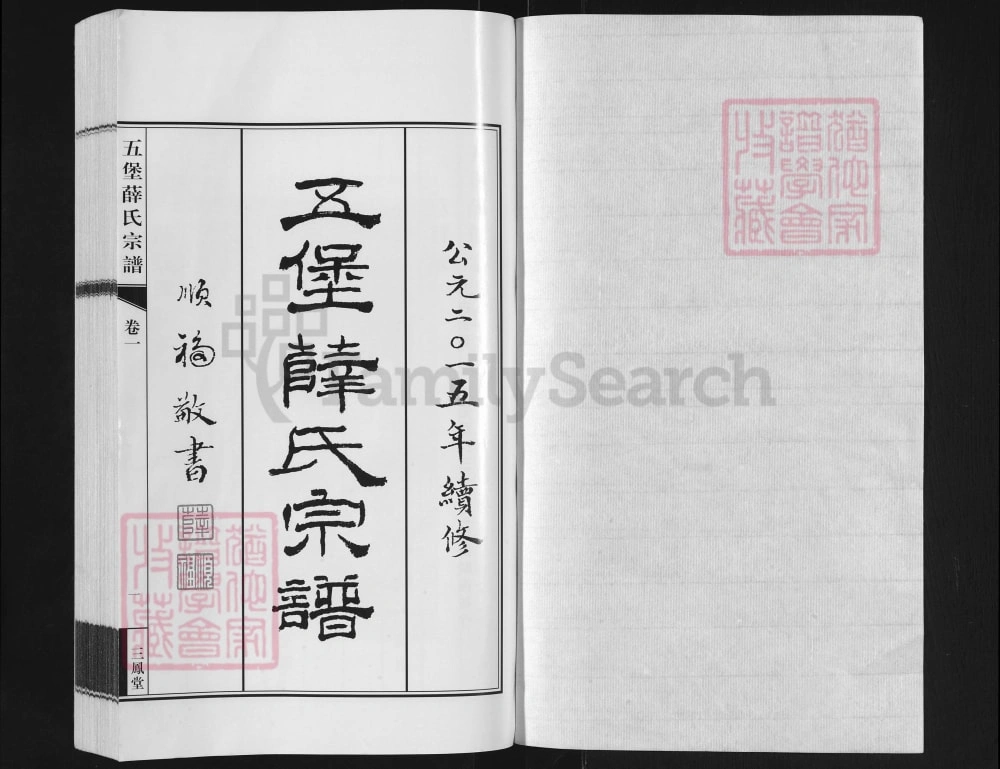 公元二〇一五年續修
五堡薛氏宗譜
順福敬書
薛
順福
五堡薛氏宗譜
卷一
一
三鳳堂
猶他家譜學會收藏
猶他家譜學會收藏
FamilySearch